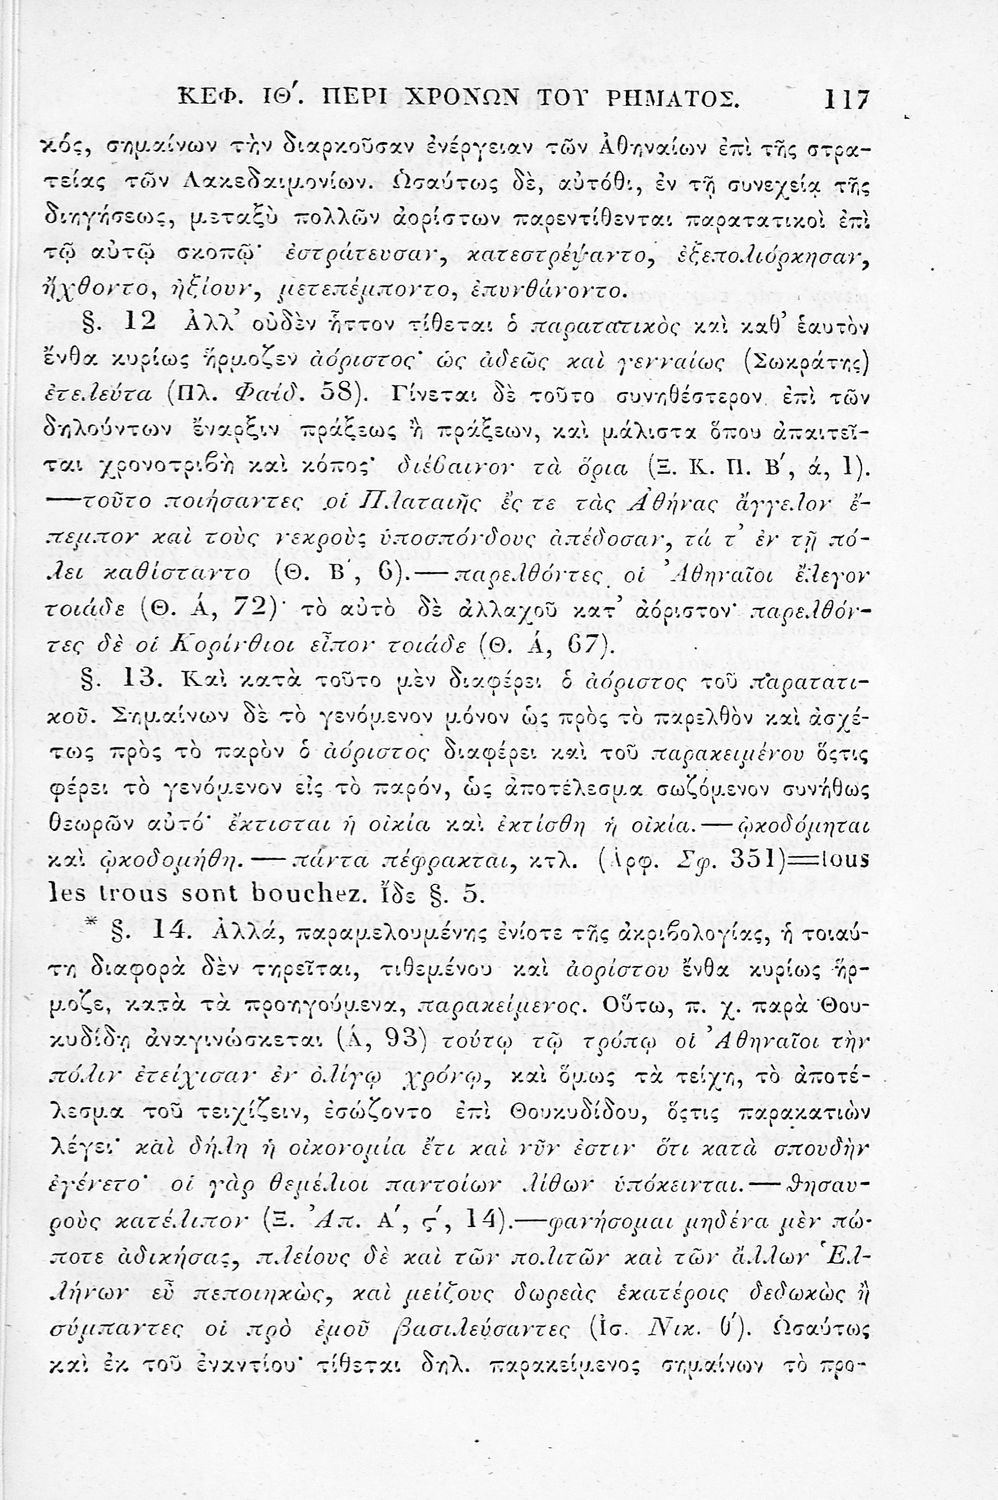 ΚΕΦ. ΙΘ′. ΠΕΡΙ ΧΡΟΝΩΝ ΤΟΥ ΡΗΜΑΤΟΣ. 117
κός, σημαίνων τὴν διαρκοῦσαν ἐνέργειαν τῶν Ἀθηναίων ἐπὶ τῆς στρα-
τείας τῶν Λακεδαιμονίων. Ὡσαύτως δὲ, αὐτόθι, ἐν τῇ συνεχείᾳ τῆς
διηγήσεως, μεταξὺ πολλῶν ἀορίστων παρεντίθενται παρατατικοὶ ἐπὶ
τῷ αὐτῷ σκοπῷ· ἐστράτευσαν, κατεστρέψαντο, ἐξεπολιόρκησαν,
ἤχθοντο, ἠξίουν, μετεπέμποντο, ἐπυνθάνοντο.
§. 12 Ἀλλ᾽ οὐδὲν ἧττον τίθεται ὁ παρατατικὸς καὶ καθ᾽ ἑαυτὸν
ἔνθα κυρίως ἥρμοζεν ἀόριστος· ὡς ἀδεῶς καὶ γενναίως (Σωκράτης)
ἐτελεύτα (Πλ. Φαίδ. 58). Γίνεται δὲ τοῦτο συνηθέστερον ἐπὶ τῶν
δηλούντων ἔναρξιν πράξεως ἢ πράξεων, καὶ μάλιστα ὅπου ἀπαιτεῖ-
ται χρονοτριβὴ καὶ κόπος· διέβαινον τὰ ὅρια (Ξ. Κ. Π. Β′, ά, 1).
—τοῦτο ποιήσαντες οἱ Πλαταιῆς ἔς τε τὰς Ἀθήνας ἄγγελον ἔ-
πεμπον καὶ τοὺς νεκροὺς ὑποσπόνδους ἀπέδοσαν, τά τ᾽ ἐν τῇ πό-
λει καθίσταντο (Θ. Β′, 6).—παρελθόντες οἱ Ἀθηναῖοι ἔλεγον
τοιάδε (Θ. Ά, 72)· τὸ αὐτὸ δὲ ἀλλαχοῦ κατ᾽ ἀόριστον· παρελθόν-
τες δὲ οἱ Κορίνθιοι εἶπον τοιάδε (Θ. Ά, 67).
§. 13. Καὶ κατὰ τοῦτο μὲν διαφέρει ὁ ἀόριστος τοῦ παρατατι-
κοῦ. Σημαίνων δὲ τὸ γενόμενον μόνον ὡς πρὸς τὸ παρελθὸν καὶ ἀσχέ-
τως πρὸς τὸ παρὸν ὁ ἀόριστος διαφέρει καὶ τοῦ παρακειμένου ὅςτις
φέρει τὸ γενόμενον εἰς τὸ παρόν, ὡς ἀποτέλεσμα σωζόμενον συνήθως
θεωρῶν αὐτό· ἔκτισται ἡ οἰκία καὶ ἐκτίσθη ἡ οἰκία.—ᾠκοδόμηται
καὶ ᾠκοδομήθη.—πάντα πέφρακται, κτλ. (Ἀρφ. Σφ. 351)=tous
les trous sont bouchez. Ἴδε §. 5.
* §. 14. Ἀλλά, παραμελουμένης ἐνίοτε τῆς ἀκριβολογίας, ἡ τοιαύ-
τη διαφορὰ δὲν τηρεῖται, τιθεμένου καὶ ἀορίστου ἔνθα κυρίως ἥρ-
μοζε, κατὰ τὰ προηγούμενα, παρακείμενος. Οὕτω, π. χ. παρὰ Θου-
κυδίδῃ ἀναγινώσκεται (Ά, 93) τούτῳ τῷ τρόπῳ οἱ Ἀθηναῖοι τὴν
πόλιν ἐτείχισαν ἐν ὀλίγῳ χρόνῳ, καὶ ὅμως τὰ τείχη, τὸ ἀποτέ-
λεσμα τοῦ τειχίζειν, ἐσώζοντο ἐπὶ Θουκυδίδου, ὅςτις παρακατιὼν
λέγει· καὶ δήλη ἡ οἰκονομία ἔτι καὶ νῦν ἐστιν ὅτι κατὰ σπουδὴν
ἐγένετο· οἱ γὰρ θεμέλιοι παντοίων λίθων ὑπόκεινται.—θησαυ-
ροὺς κατέλιπον (Ξ. Ἀπ. Α′, ς′, 14).—φανήσομαι μηδένα μὲν πώ-
ποτε ἀδικήσας, πλείους δὲ καὶ τῶν πολιτῶν καὶ τῶν ἄλλων Ἑλ-
λήνων εὖ πεποιηκὼς, καὶ μείζους δωρεὰς ἑκατέροις δεδωκὼς ἢ
σύμπαντες οἱ πρὸ ἐμοῦ βασιλεύσαντες (Ἰσ. Νικ. θ′). Ὡσαύτως
καὶ ἐκ τοῦ ἐναντίου· τίθεται δηλ. παρακείμενος σημαίνων τὸ προ-